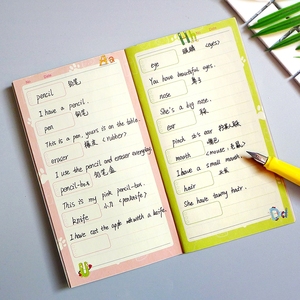 Aa
pencil 铅笔
I have a pencil.
pen 钢笔
This is a pen, yours is on the table.
eraser 橡皮 (rubber)
I use the pencil and eraser everyday.
pencil-box 铅笔盒
This is my pink pencil-box.
knife 小刀 (penknife)
I have cut the apple with a knife.
Hh
eye 眼睛 (eyes)
You have beautiful eyes.
nose 鼻子
She's a big nose.
ear 耳朵
mouth 嘴巴
I have a small mouth
hair 头发
She have hair.